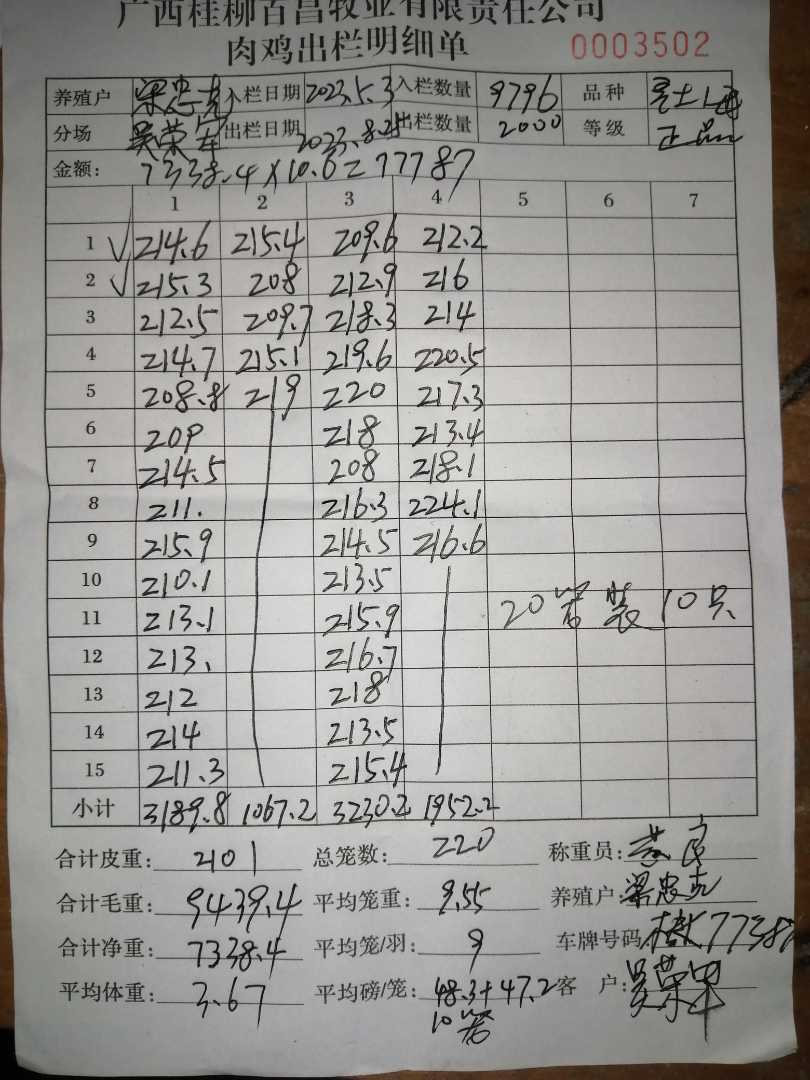 广西桂柳百昌牧业有限责任公司
肉鸡出栏明细单 0003502
养殖户 梁忠克 入栏日期 2023.5.3 入栏数量 9796 品种
分场 吴荣军 出栏日期 2023.8.25 出栏数量 2000 等级 正品
金额: 7338.4×10.6=77787
1 2 3 4 5 6 7
1 √ 214.6 215.4 209.6 212.2
2 √ 215.3 208 212.9 216
3 212.5 209.7 218.3 214
4 214.7 215.1 219.6 220.5
5 208.8 219 220 217.3
6 209 218 213.4
7 214.5 208 218.1
8 211. 216.3 224.1
9 215.9 214.5 216.6
10 210.1 213.5
11 213.1 215.9 20笼装10只
12 213. 216.7
13 212 218
14 214 213.5
15 211.3 215.4
小计 3189.8 1067.2 3230.2 1952.2
合计皮重: 2101 总笼数: 220 称重员:
合计毛重: 9439.4 平均笼重: 9.55 养殖户: 梁忠克
合计净重: 7338.4 平均笼/羽: 9 车牌号码 7738
平均体重: 3.67 平均磅/笼: 48.3+47.2 客户: 吴荣军
10笼